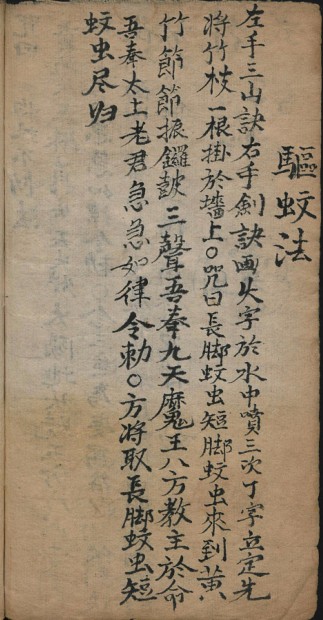 驅蚊法
左手三山訣右手劍訣画火字於水中噴三次丁字立定先
將竹枝一根掛於墻上〇咒曰長脚蚊虫短脚蚊虫來到黃
竹節節振鑼鼓三聲吾奉九天魔王八方教主於命
吾奉太上老君急急如律令勅〇方将取長脚蚊虫短
蚊虫尽归